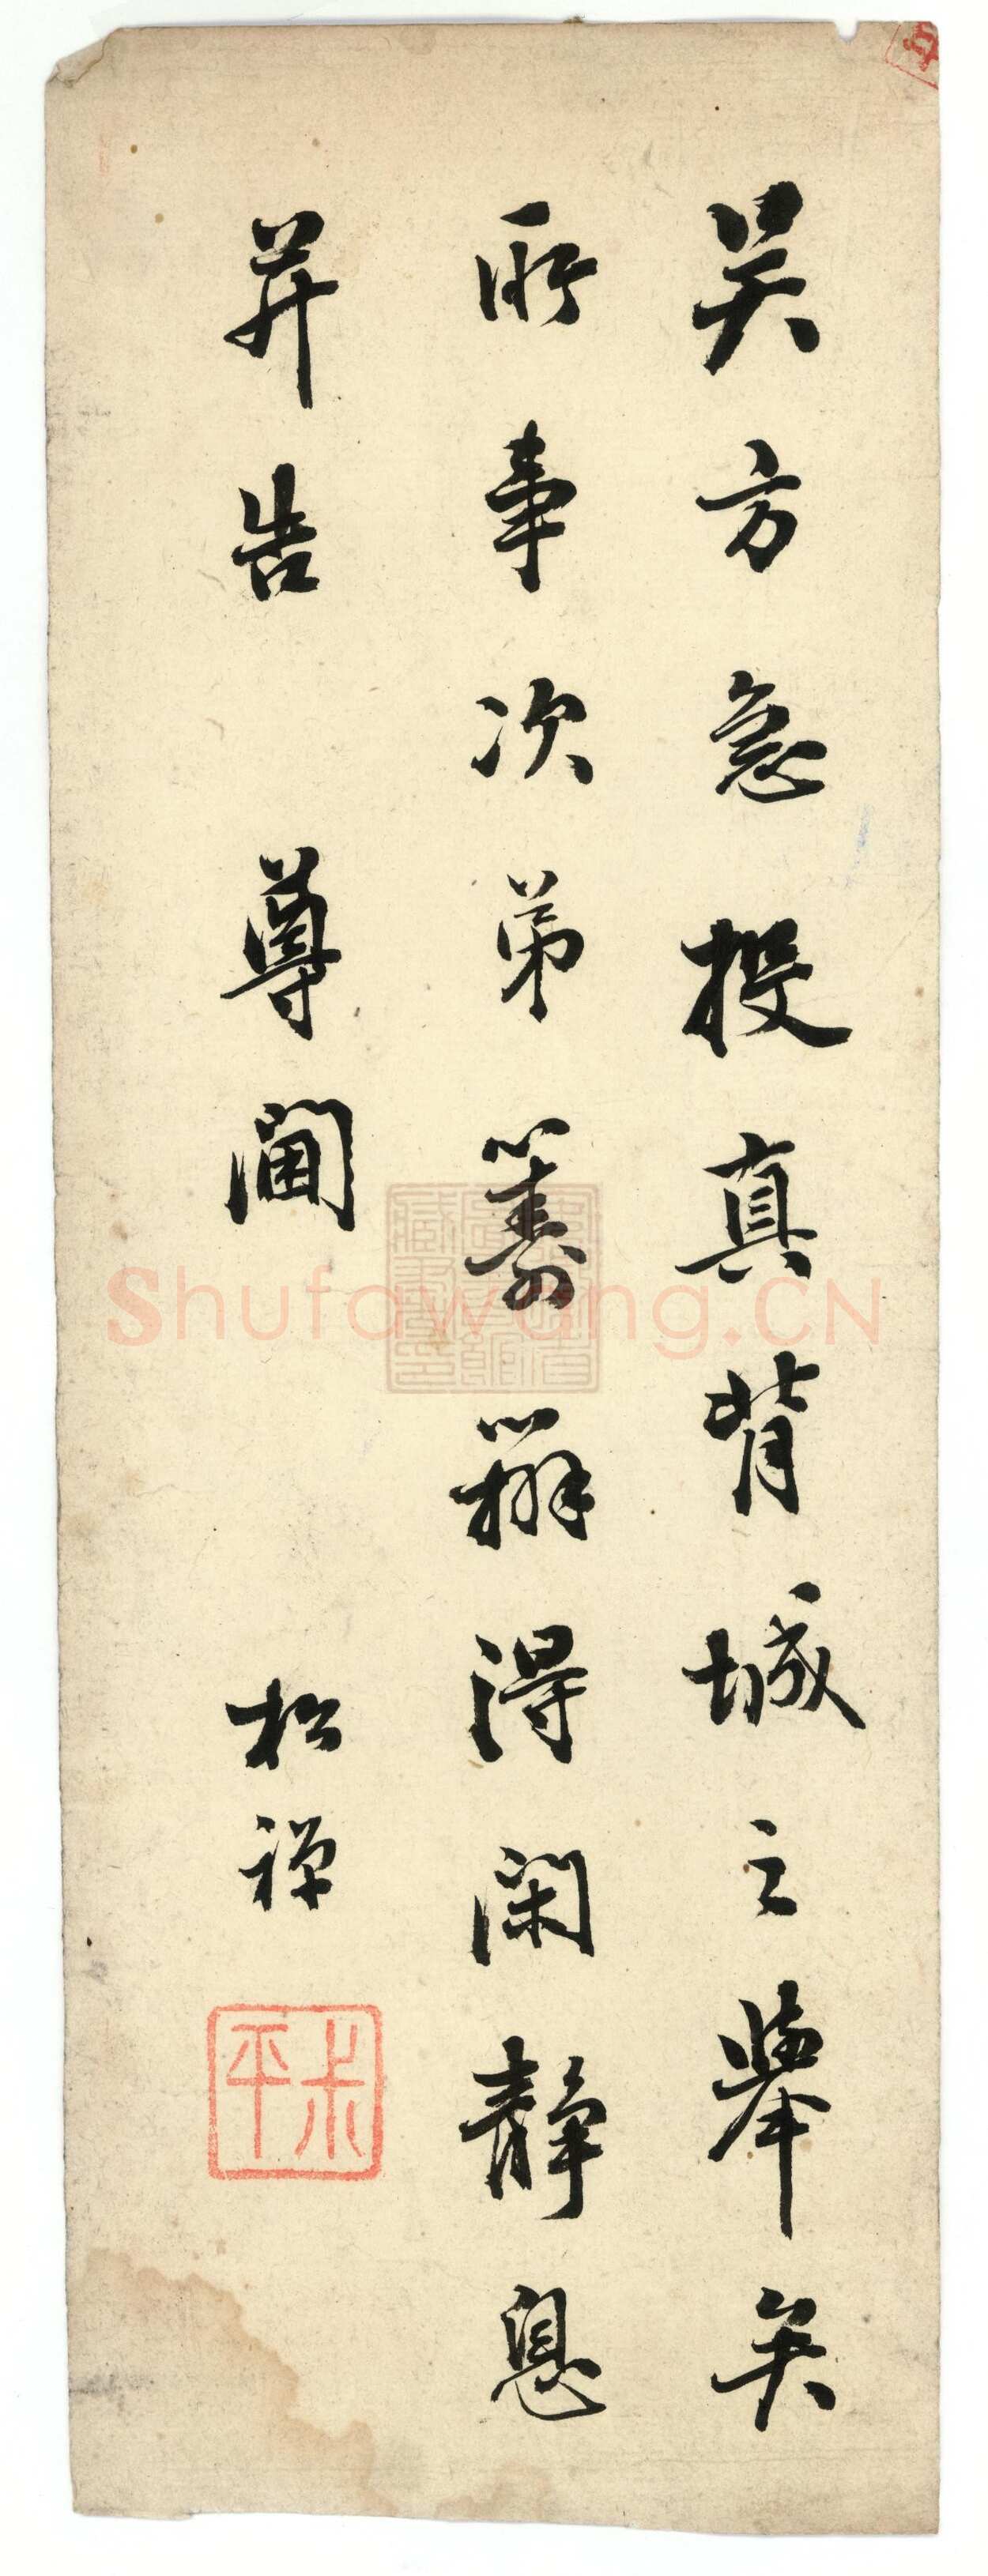 吴方急投真背城之舉矣
所事次第籌辦得閑靜息
并告 尊閫
松禪
未平
Shufawang.CN